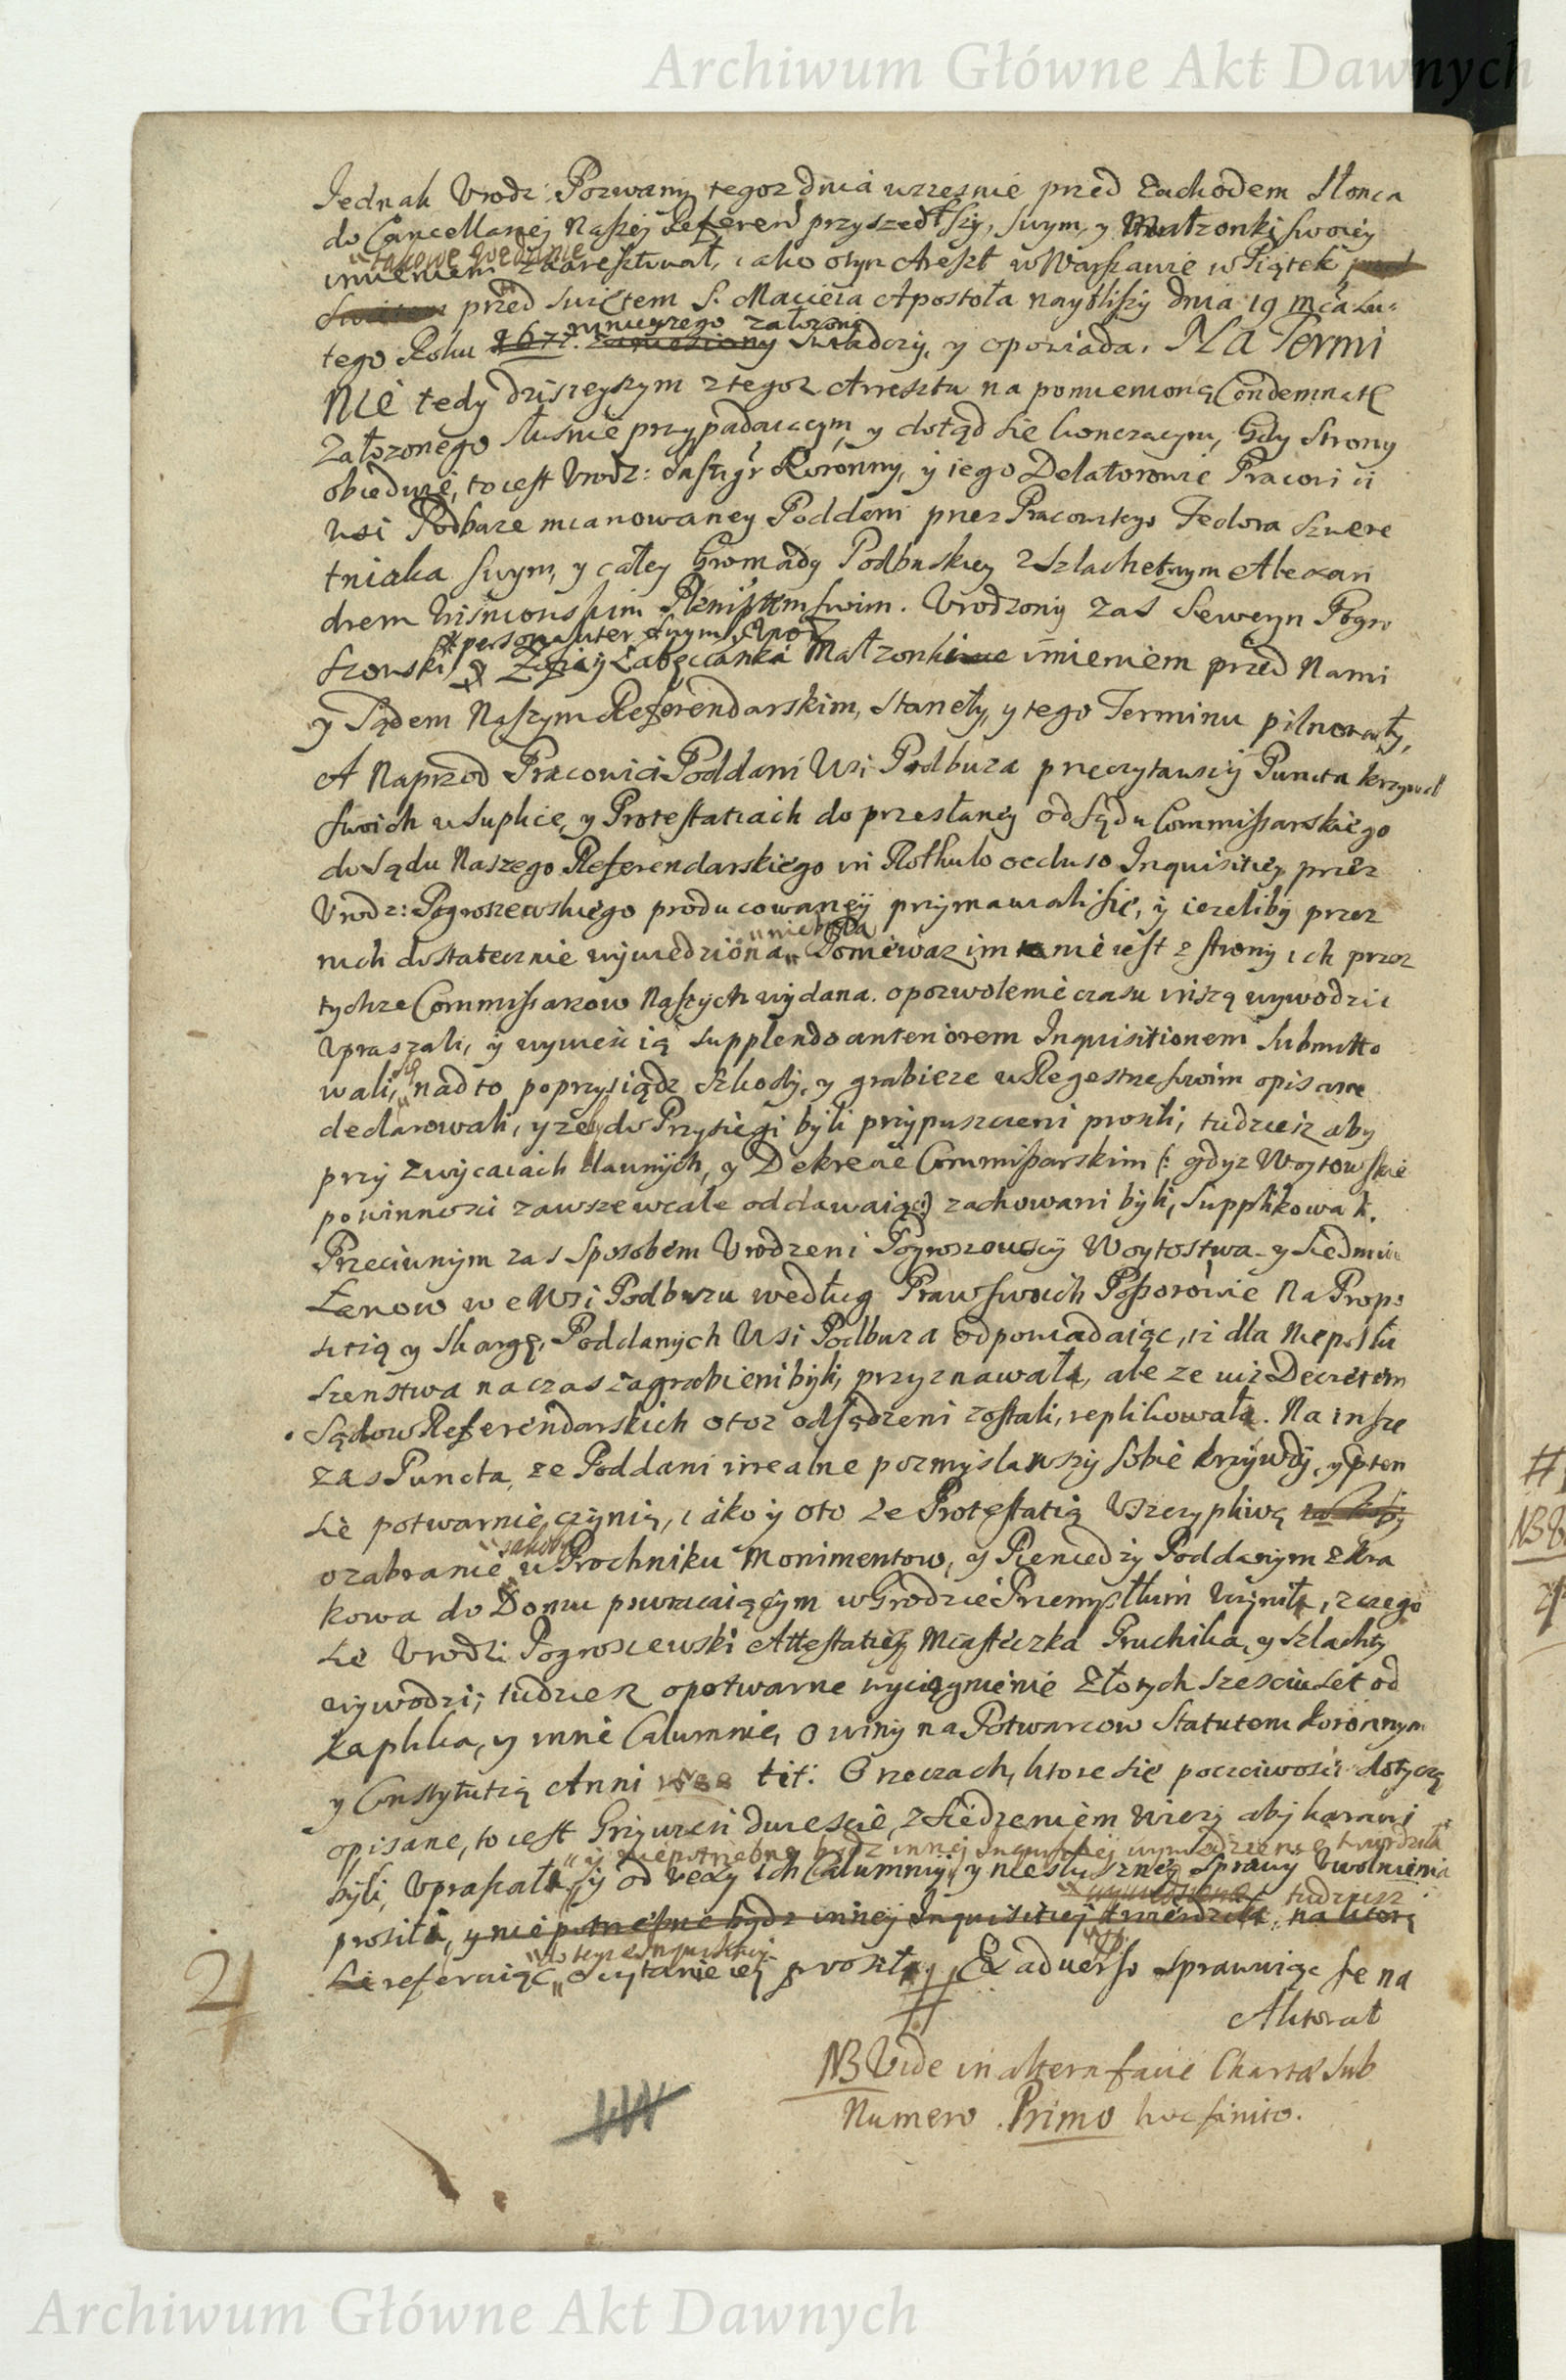 Archiwum Główne Akt Dawnych
Jednak Vrodz: Pozwany tegoz dnia wczesnie przed zachodem słonca
do Cancellariej Naszej Referen przyszedłszy, swym, y Małzonki swoiey
takowe zwedzenie
imieniem zaaresztował, iako otym Areszt w Warszawie w Piątek
przed swiętem S. Macieia Apostoła naybliszy dnia 19 mca Lu-
ninieyszego załozony
tego Roku 1677. zaniesiony swiadczy, y opowiada. Na Termi
nie tedy dzisieyszym z tegoz Arresztu na pomienioną Condemnatę
załozonego słusnie przypadaiącym, y dotąd się konczącym, Gdy strony
obiedwie, to iest Vrodz: Instigr Koronny, y iego Delatorowie Pracowici
wsi Podbuze mianowaney Poddani przez Pracowitego Fedora Szwere
tniaka swym, y całey Gromady Podbuskiey z Szlachetnym Alexan
drem Wisniowskim Plenipotem swim. Vrodzony zas Seweryn Pogro
personaliter swym y Vrodz
szowski y Zofiey Łabęcianki Małzonki imieniem przed Nami
y Sądem Naszym Referendarskim, staneły, y tego Terminu pilnowały,
A Naprzod Pracowici Poddani Wsi Podbuza przeczytawszy Puncta krzywd
swoich w suplice, y Protestatiach do przesłaney od Sądu Commissarskiego
do Sądu Naszego Referendarskiego in Rothulo occluso Inquisitiey, przez
Vrodz: Pogroszewskiego producowaney przymawiali się, y iezeliby przez
nie była
nich dostatecznie wywiedziona, Poniewaz im nie iest z strony ich przez
tychze Commissarzow Naszych wydana. o pozwolenie czasu inszą wywodzic
vpraszali, y wywiesc ią supplendo anteriorem Inquisitionem submitto
się
wali, nad to poprzysiądz szkody, y grabieze w Regestrze swoim opisane
declarowali, y ze do Przysiegi byli przypuszczeni prosili, tudziesz aby
przy zwyczaiach dawnych, y Dekrecie Commissarskim (: gdyz Woytowskie
powinnosci zawsze wcale oddawaią:) zachowani byli, supplikowali.
Przeciwnym zas sposobem Vrodzeni Pogroszowscy Woytostwa y siedmiu
Łanow we Wsi Podbuzu według Praw swoich Possorowie Na Propo
sitią y skargę, Poddanych Wsi Podbuza odpowiadaiąc, iz dla Nieposłu
szenstwa na czas zagrabieni byli, przyznawała, ale ze iuz Decretem
Sądow Referendarskich o toz odsądzeni zostali, replikowała. Na insze
zas Puncta, ze Poddani irrealne pozmyslawszy sobie krzywdy,
się potwarnie czynią, iako y oto ze Protestatią Vszczypliwą
o zabranie u Prochniku Monimentow, y Pieniedzy Poddanym z Kra
kowa do Domu powracaiącym w Grodzie Przemyslkim uczynili, z czego
się Vrodz: Pogroszewski Attestatią Miasteczka Pruchnika, y szlachty
wywodzi; tudziez o potwarne wyciągnienie Złotych szesciuset od
Kaplika, y inne Calumnie, o winy na Potwarcow Statutem Koronnym
y Constytutią Anni 1588 tit: O rzeczach, ktore się poczciwosci dotyczą
opisane, to iest Grzywien dwiescie, z siedzeniem wiezy aby karani
y niepotrzebne bydz inney Inquisitiey wywodzenie twierdziła
byli, Vpraszała, y od tedy ich Calumniy, y niesłuszney sprawy Vwolnienia
tudziesz
prosiła, y niepotrzebne bydz inney Inquisitiey twierdziła, na ktorą
do teyze Inquisitiey
się referuiąc, o czytanie iey prosiła, Ex adverso sprawuiąc se na
Aktorat
#
NB Vide in altera facie Charta sub
Numero Primo hoc signito.
#
NB
Archiwum Główne Akt Dawnych